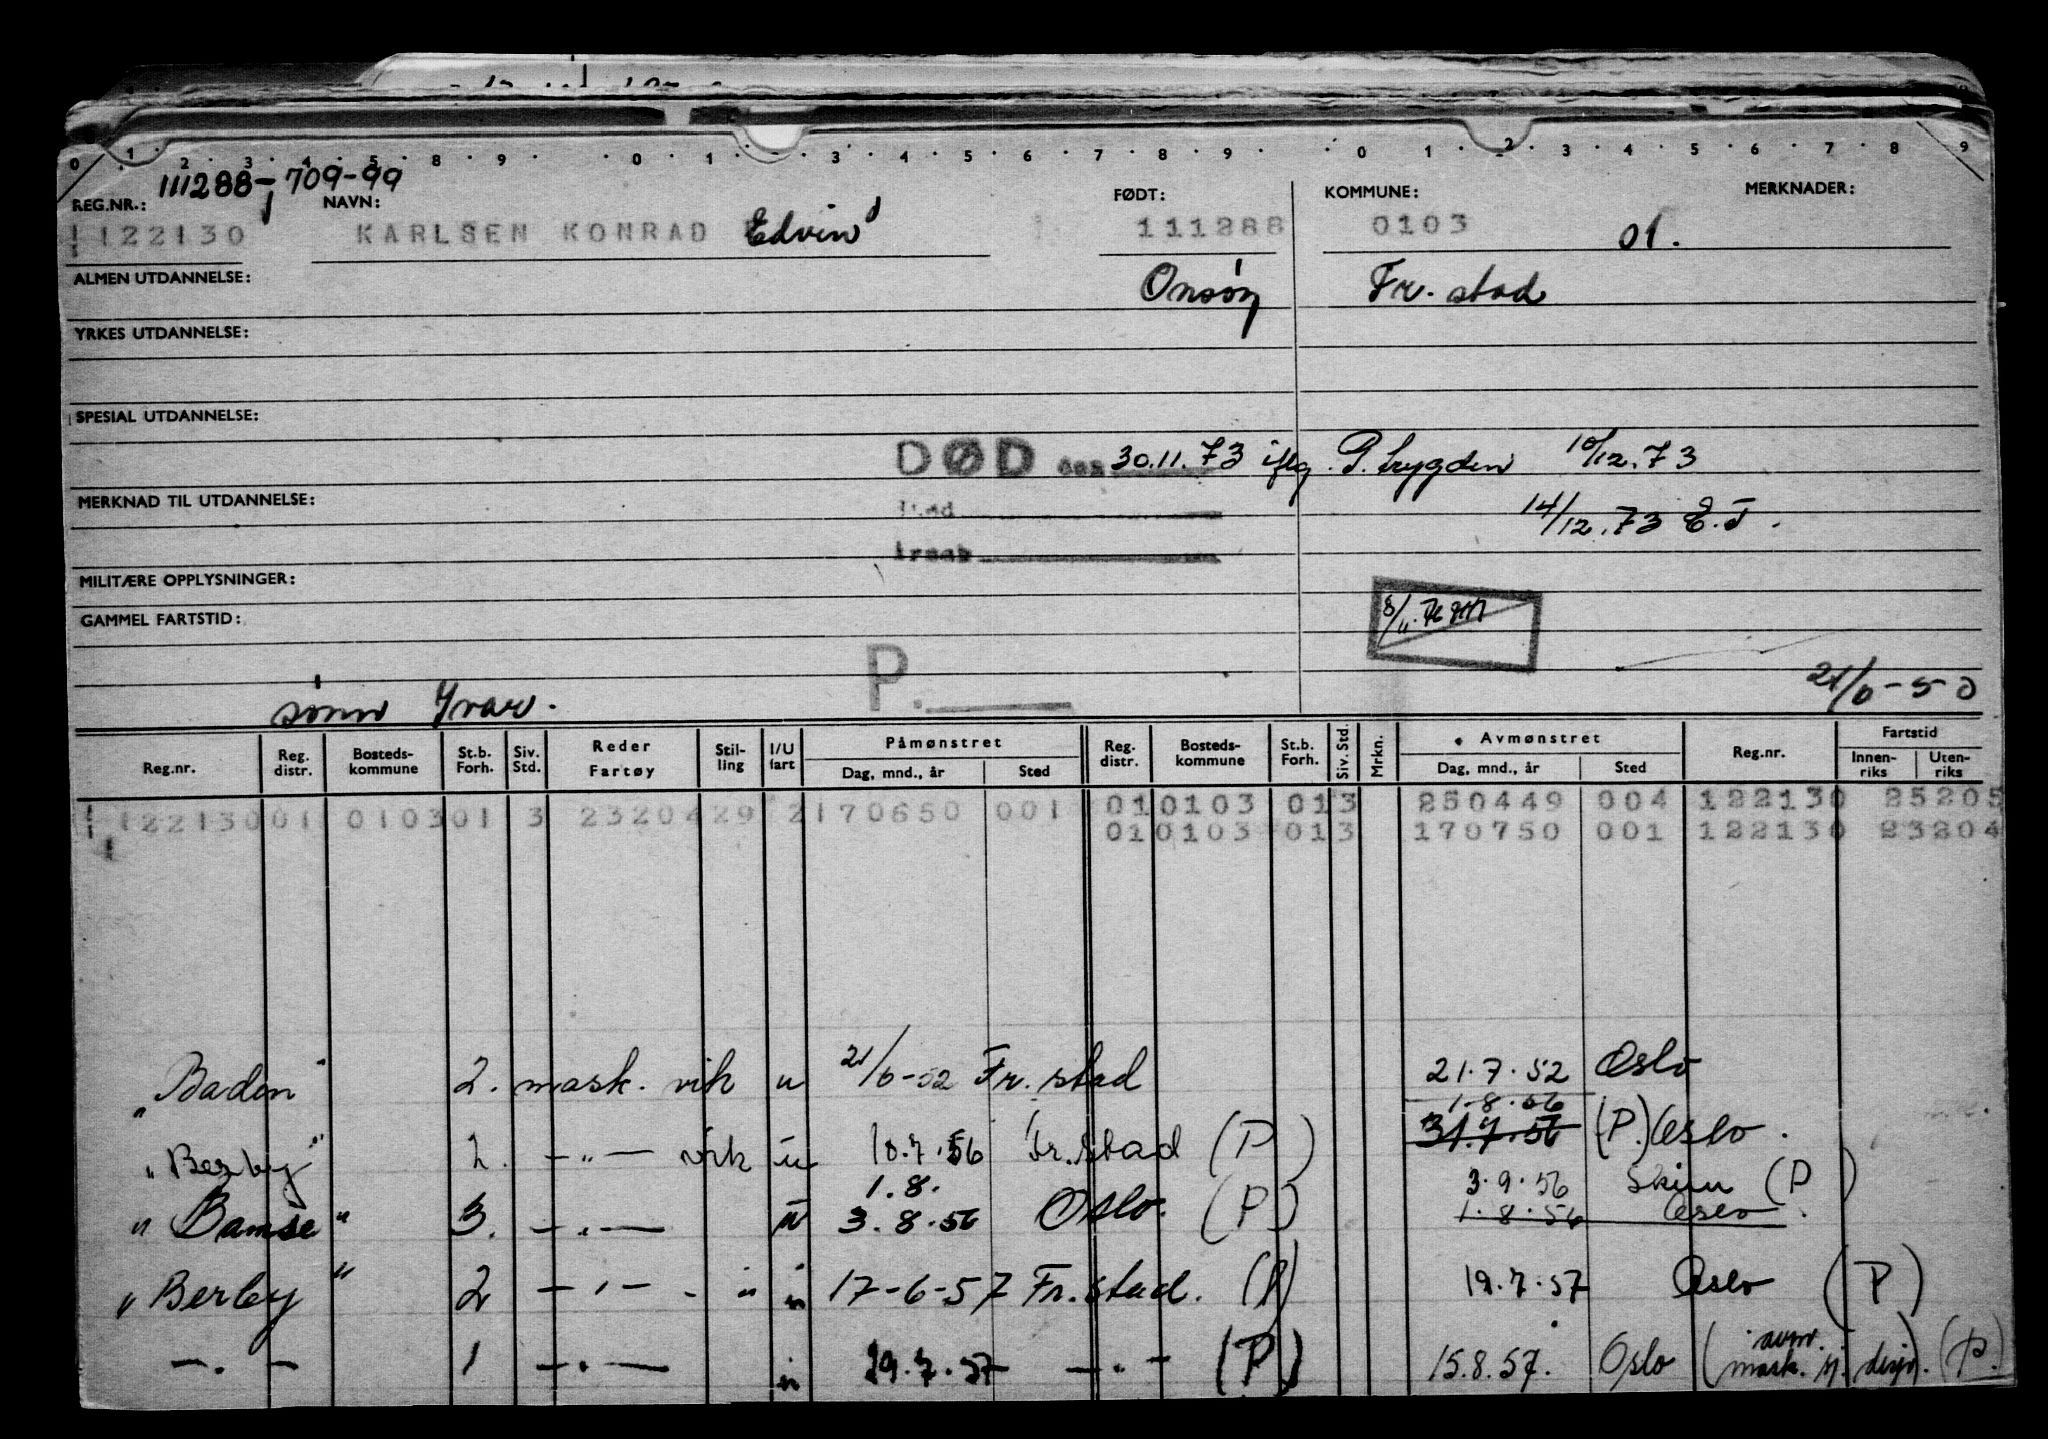 0 1 2 3 4 5 8 9 0 1 3 4 5 6 7 8 9 0 1 2 3 4 5 6 7 8 9
111288-709-99
REG.NR.: NAVN: FØDT: KOMMUNE: MERKNADER:
122130 KARLSEN KONRAD Edvin 111288 0103 01.
ALMEN UTDANNELSE: Onsøy Fr. stad
YRKES UTDANNELSE:
SPESIAL UTDANNELSE:
DØD den 30.11.73 iflg. P. trygden 10/12.73
MERKNAD TIL UTDANNELSE:
14/12.73 E.T.
Årsak
MILITÆRE OPPLYSNINGER:
GAMMEL FARTSTID: 8/11.
P.
sønn Ivar. 21/6-50
Reg.nr. Reg. distr. Bosteds-kommune St.b. Forh. Siv. Std. Reder Fartøy Stil-ling I/U fart Påmønstret Dag, mnd., år Sted Reg. distr. Bosteds-kommune St.b. Forh. Siv. Std. Mrkn. Avmønstret Dag, mnd., år Sted Reg.nr. Fartstid Innen-riks Uten-riks
122130 01 0103 01 3 23204 29 2 170650 001 01 0103 01 3 250449 004 122130 25205
01 0103 01 3 170750 001 122130 23204
"Baden" 2. mask. vik u 21/6-52 Fr. stad 21.7.52 Oslo
1.8.56
"Berby" 2. -"- vik u 10.7.56 Fr.stad (P) 31.7.56 (P.) Oslo.
1.8. 3.9.56 Skien (P)
"Bamse" 3. -"- u 3.8.56 Oslo. (P) 1.8.56 Oslo.
"Berby" 2 -"- " u 17-6-57 Fr.stad. (P) 19.7.57 Oslo (P)
-"- 1 -"- u 29.7.57 -"- (P) 15.8.57. Oslo (avm. mask. disp). (P.)